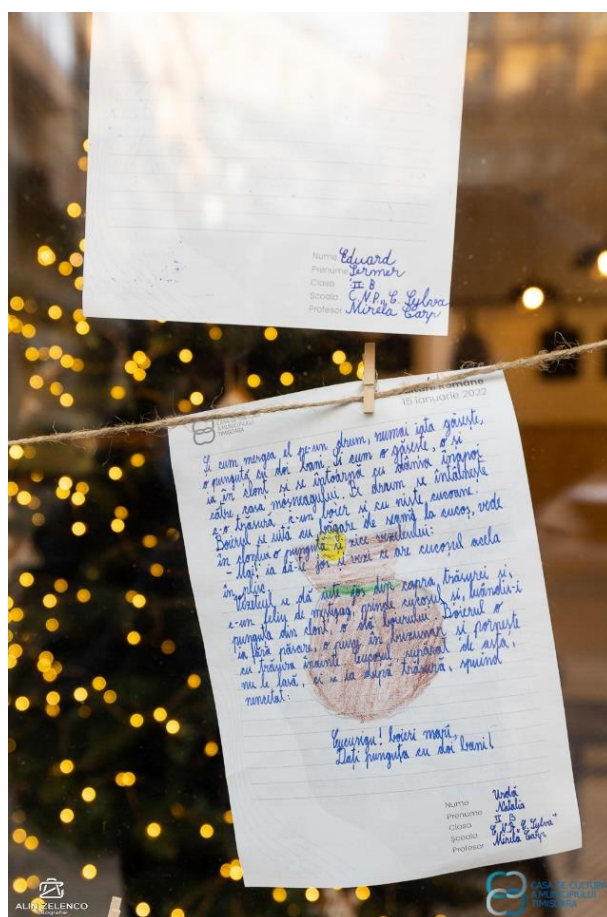 Nume Eduard
Prenume Sermer
Clasa II B
Școala C.N.P. „C. Sylva
Profesor Mirela Carp
Române
15 Ianuarie 2022
CASA DE CULTURĂ
A MUNICIPIULUI
TIMIȘOARA
Și cum mergea el pe-un drum, numai iată găsește,
o punguță cu doi bani. Și cum o găsește, o și
ia în clonț și se întoarnă cu dânsa înapoi
către casa moșneagului. Pe drum se întâlnește
c-o trăsură c-un boier și cu niște cucoane.
Boierul se uită cu băgare de seamă la cucoș, vede
în clonțu-i o punguță și zice vezeteului:
Măi! ia dă-te jos și vezi ce are cucoșul acela
în plisc.
Vezeteul se dă iute jos din capra trăsurei și,
c-un feliu de meșteșug, prinde cucoșul și, luându-i
punguța din clonț o dă boierului. Boierul o
ia fără păsare, o pune în buzunar și pornește
cu trăsura înainte. Cucoșul supărat de asta,
nu se lasă, ci se ia după trăsură, spuind
necontat:
Cucurigu! boieri mari,
Dați punguța cu doi bani!
Nume Urdă
Prenume Natalia
Clasa II B
Școala C.N.P. „C. Sylva"
Profesor Mirela Carp
ALIN ZELENCO
fotografie
CASA DE CULTURĂ
A MUNICIPIULUI
TIMIȘOARA